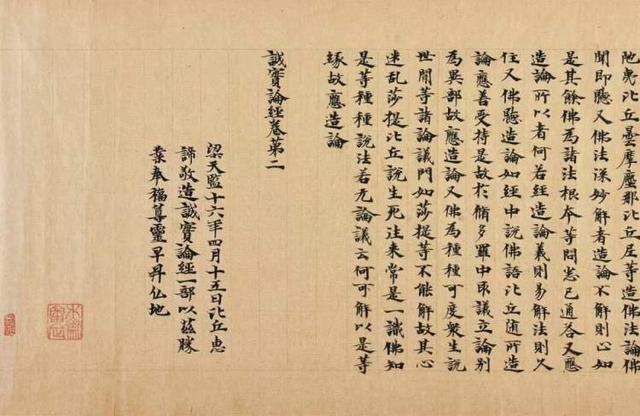 陁夷比丘曇摩塵那比丘尼等造佛法論佛
聞即聽又佛法深妙解者造論不解則止如
是其餘佛為諸法根本等問悉已通荅又應
造論所以者何若經造論義則易解法則久
住又佛聽造論如經中說佛語比丘隨所造
論應善受持是故於脩多羅中取議立論別
為異部故應造論又佛為種種可度衆生說
世間等諸論議門如莎提等不能解故其心
迷乱莎提比丘說生死往来常是一識佛如
是等種種說法若无論議云何可解以是等
緣故應造論
誠實論經卷第二
梁天監十六年四月十五日比丘惠
諦敬造誠實論經一部以茲勝
業奉福尊靈早昇仏地